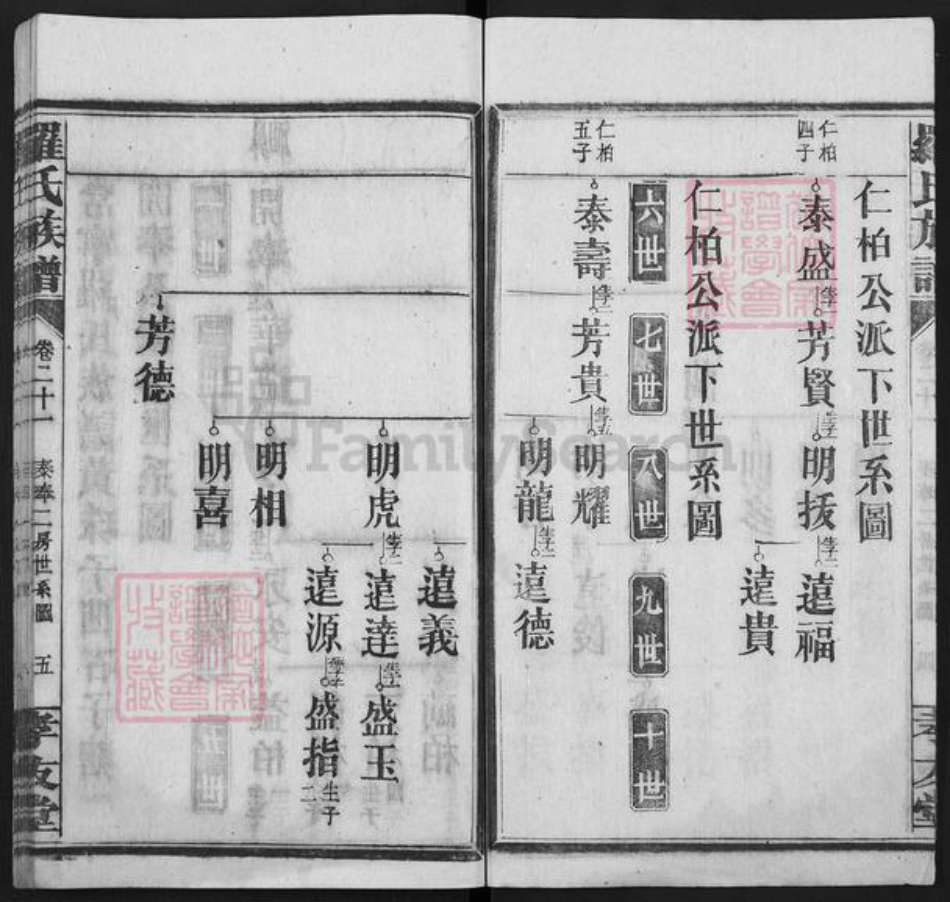 仁柏公派下世系圖
仁柏
四子
泰盛
芳賢
明拔
遠福
遠貴
仁柏公派下世系圖
六世
七世
八世
九世
十世
仁柏
五子
泰壽
芳貴
明耀
明龍
遠德
遠義
明虎
遠達
盛玉
遠源
盛指
生子
二
明相
明喜
芳德
羅氏族譜
卷二十一
泰奉二房世系圖
五
孝友堂
FamilySearch